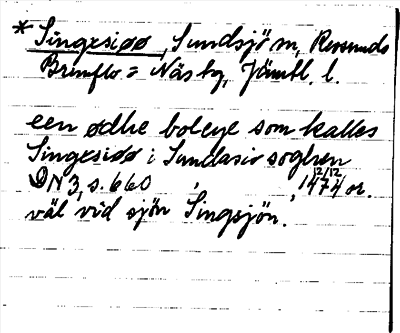 * Singesiøø, Sundsjö sn, Revsunds
Brunflo = Näs tg, Jämtl. l.
een ødhe boleye som kalles
Singesiøø i Sundasio soghen
DN 3, s. 660, 12/12 1474 or.
väl vid sjön Singsjön.